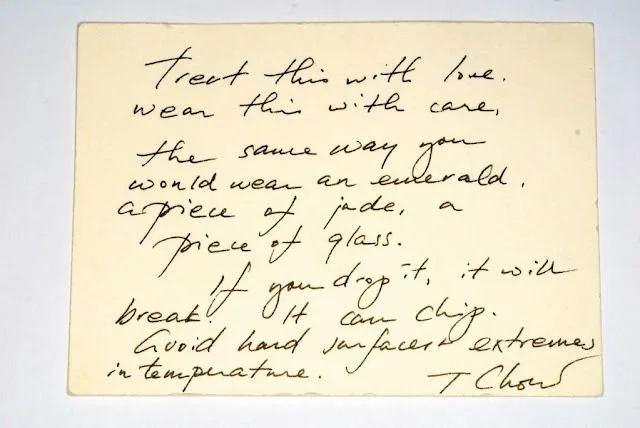 Treat this with love.
wear this with care,
the same way you
would wear an emerald,
a piece of jade, a
piece of glass.
If you drop it, it will
break. It can chip.
Avoid hard surfaces & extremes
in temperature. T Chow